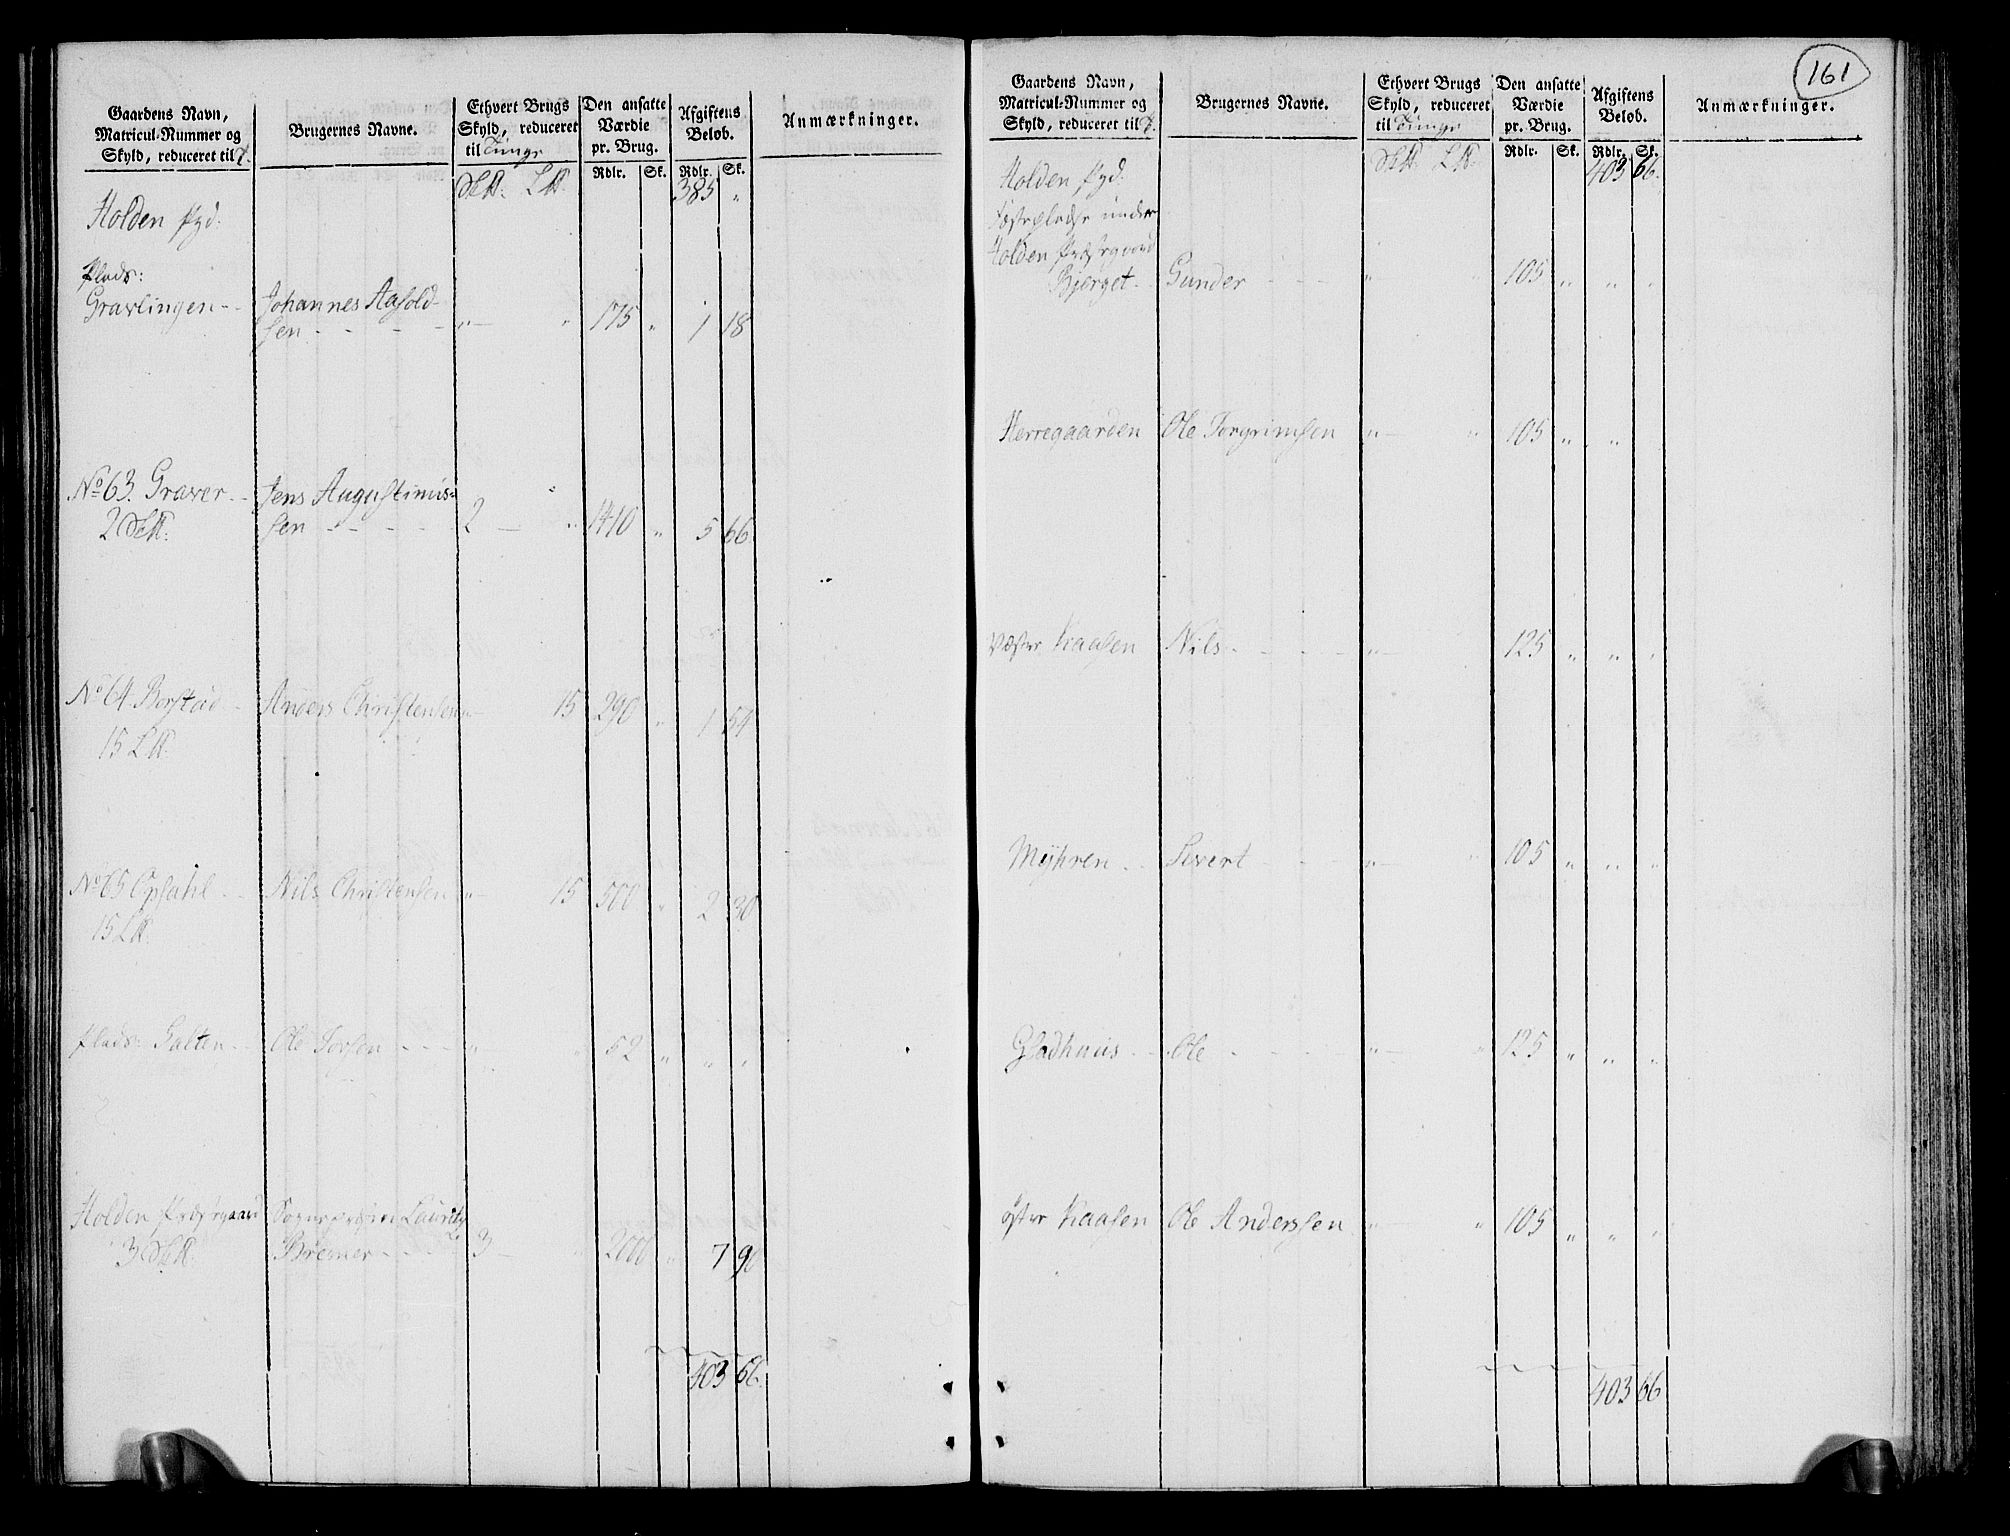 161
Gaardens Navn,
Matricul-Nummer og
Skyld, reduceret til T.
Brugernes Navne.
Ethvert Brugs
Skyld, reduceret
til Tunge
Den ansatte
Værdie
pr. Brug.
Afgiftens
Beløb.
Anmærkninger.
Rdlr. Sk. Rdlr. Sk.
S℔. L℔. 385 "
Holden Præstegjd.
Plads:
Gravlingen - - Johannes Aasold-
sen - - - - " " 175 " 1 18
No 63. Graver - Jens Augustinus-
2 S℔. sen - - - - 2 - " 1410 " 5 66.
No 64 Borstad - Anders Christensen " 15 290 " 1 54
15 L℔.
No 65 Opsahl - - Nils Christensen " 15 500 " 2 30
15 L℔.
Plads: Galten - - Ole Torsen - - - " " 52 " " "
Holden Præstegaard Sognepræst Lauritz
3 S℔. Bremer - - - 3 - " 2000 " 7 90
403 66.
Gaardens Navn,
Matricul-Nummer og
Skyld, reduceret til T.
Brugernes Navne.
Ethvert Brugs
Skyld, reduceret
til Tunge
Den ansatte
Værdie
pr. Brug.
Afgiftens
Beløb.
Anmærkninger.
Rdlr. Sk. Rdlr. Sk.
S℔. L℔. 403 66.
Holden
under
Holden Præstegaard
Bjerget - Gunder - - - " " 105 " " "
Herregaarden Ole Torgrimsen " " 105 " "
Væster Kaasen Nils - - - - " " 125 " " "
Myhren - - Sivert - - - " " 105 " " "
Gladhuus - - Ole - - - - " " 125 " " "
Øster Kaasen Ole Anderssen " " 105 " " "
403 66